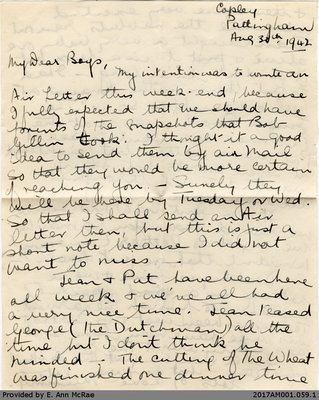 Copley
Pattingham
Aug 30th, 1942
My Dear Boys,
My intention was to write an
Air Letter this week-end, because
I fully expected that we should have
prints of the snapshots that Bob
took. I thought it a good
idea to send them by air mail
so that they would be more certain
of reaching you. – Surely they
will be here by Tuesday or Wed.
So that I shall send an Air
letter then, but this is just a
short note because I did not
want to miss —
Jean & Pat have been here
all week & we've all had
a very nice time. Jean teased
George (the Dutchman) all the
time but I don't think he
minded. – The cutting of the wheat
was finished one dinner time
Provided by E. Ann McRae
2017AM001.059.1